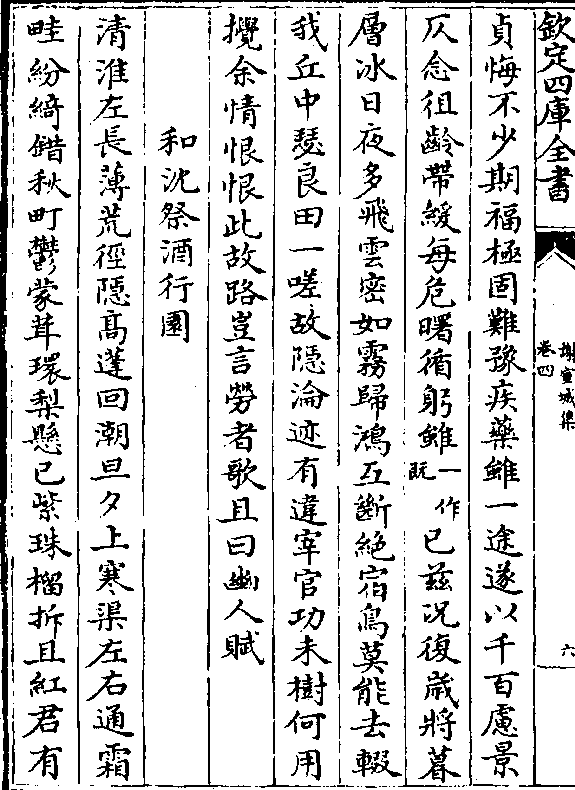 欽定四庫全書
謝宣城集
卷四
六
貞悔不少期福極固難豫疾藥雖一途遂以千百慮景
仄念徂齡帶緩每危曙循躬雖一作既已茲况復歲將暮
層冰日夜多飛雲密如霧歸鴻互斷絶宿鳥莫能去輟
我丘中瑟良田一嗟故隱淪迹有違宰官功未樹何用
攪余情恨恨此故路豈言勞者歌且曰幽人賦
和沈祭酒行園
清淮左長薄荒徑隠髙蓬回潮旦夕上寒渠左右通霜
畦紛綺錯秋町鬱蒙茸環梨懸已紫珠榴拆且紅君有